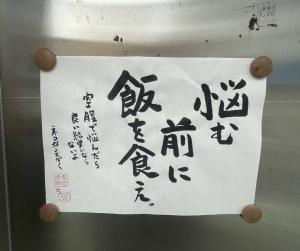 悩む
前に
飯を食え。
空腹で悩んだら
良い結果なら
ないよ